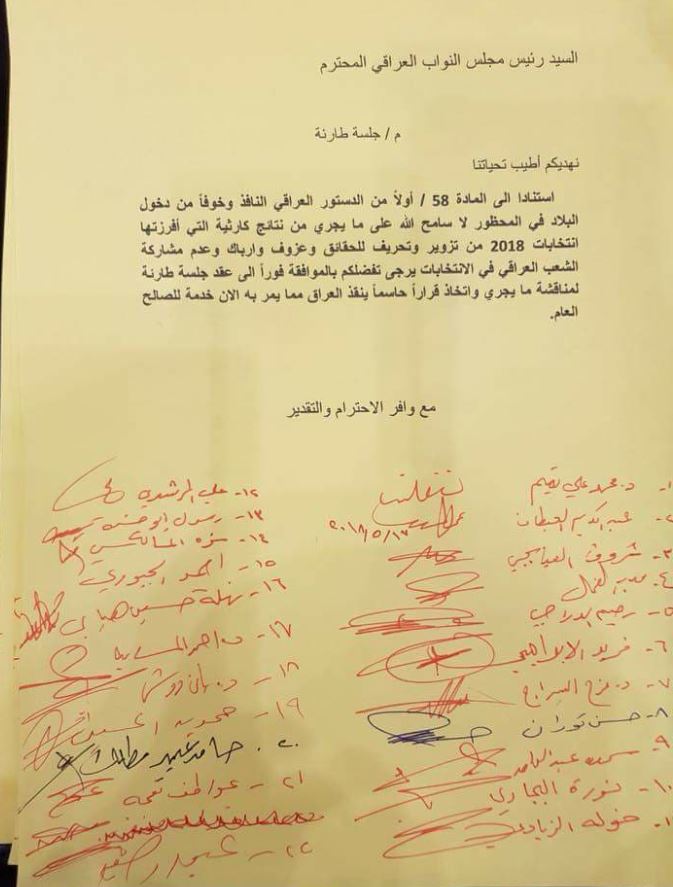 السيد رئيس مجلس النواب العراقي المحترم
م / جلسة طارئة
نهديكم أطيب تحياتنا
استنادا الى المادة 58 / أولاً من الدستور العراقي النافذ وخوفاً من دخول
البلاد في المحظور لا سامح الله على ما يجري من نتائج كارثية التي أفرزتها
انتخابات 2018 من تزوير وتحريف للحقائق وعزوف وارباك وعدم مشاركة
الشعب العراقي في الانتخابات يرجى تفضلكم بالموافقة فوراً الى عقد جلسة طارئة
لمناقشة ما يجري واتخاذ قراراً حاسماً ينقذ العراق مما يمر به الان خدمة للصالح
العام.
مع وافر الاحترام والتقدير
١- د. محمد علي تميم
٢- عبد الكريم العبطان
٣-
٤-
٥- رحيم الدراجي
٦- فريد الابراهيمي
٧- د. فرح السراج
٨- حسن توران
٩-
١٠- نورة البجاري
١١- خوله
١٢- علي
١٣- رسول ابو حسنه
١٤-
١٥- احمد الجبوري
١٦- نهلة حسين
١٧- د. احمد
١٨- د.
١٩-
٢٠. حامد عبيد
٢١- عواطف نعمه
٢٢-